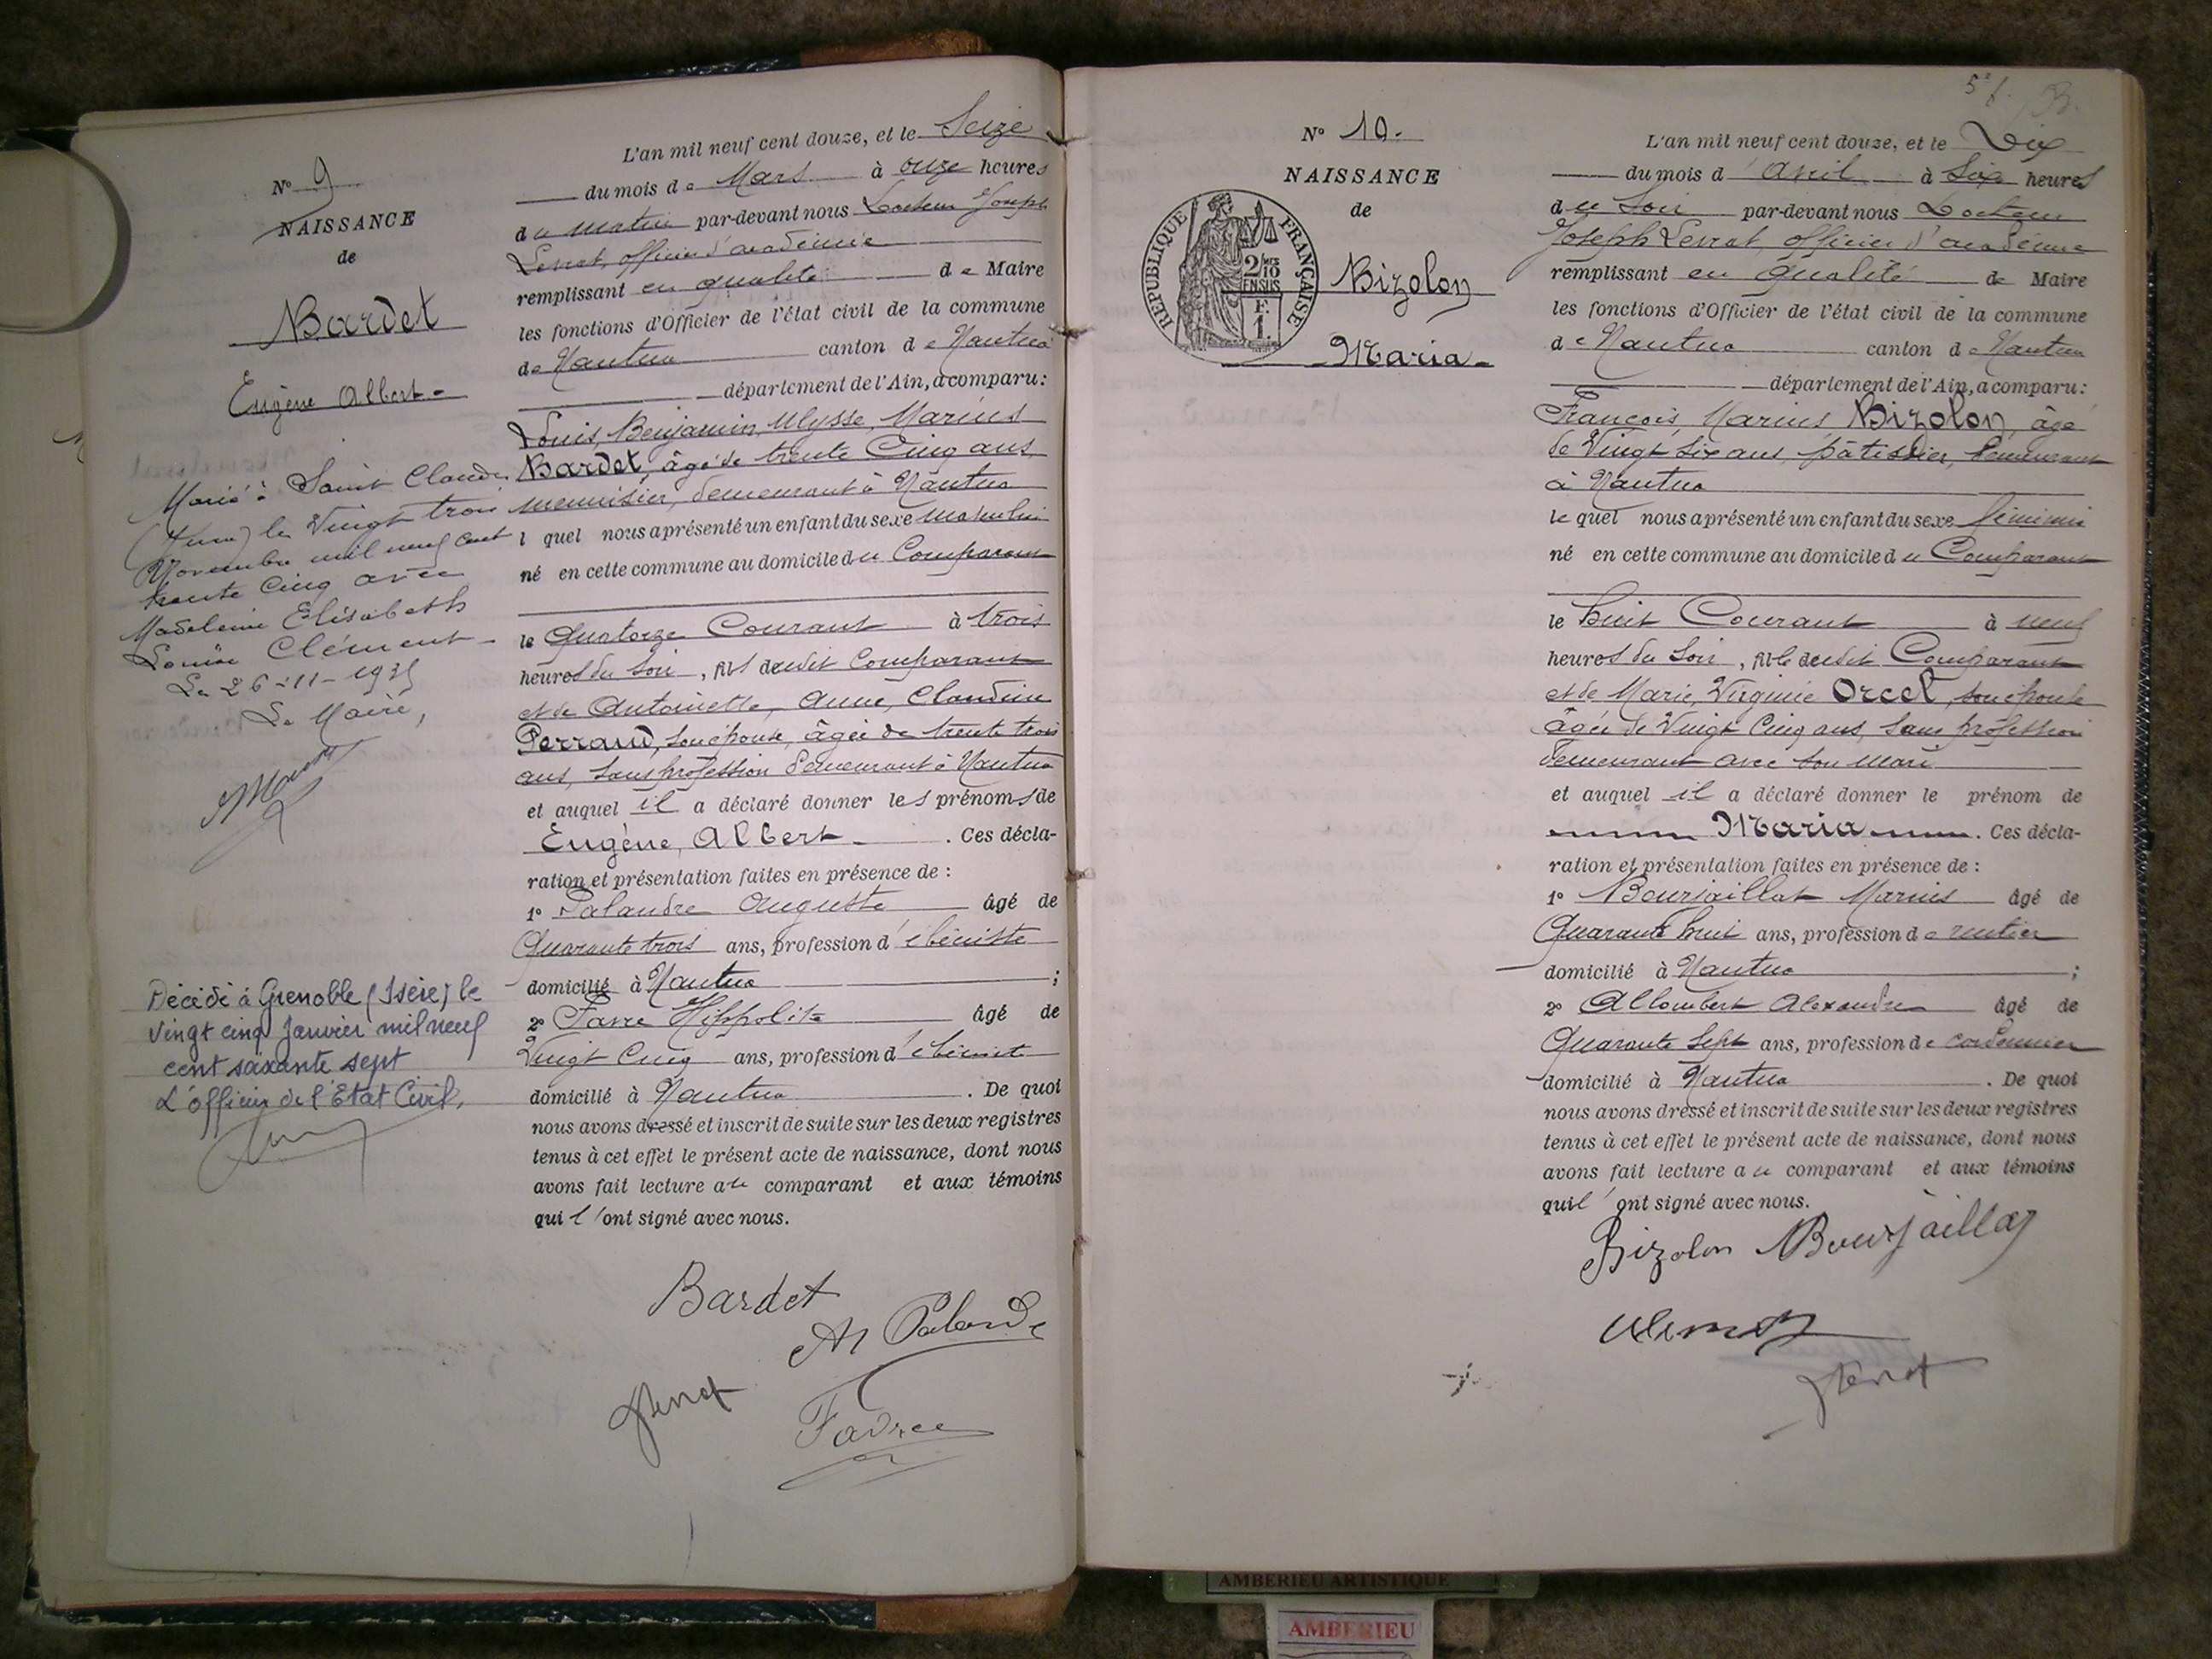 N° 9
NAISSANCE
de
Bardet
Eugène Albert
Marié à Saint Claude
(Jura) le Vingt trois
Novembre mil neuf cent
trente cinq avec
Madeleine Elisabeth
Louise Clément
Le 26-11-1935
Le Maire,
Décédé à Grenoble (Isère) le
vingt cinq Janvier mil neuf
cent soixante sept
L'officier de l'Etat Civil,
L'an mil neuf cent douze, et le Seize
du mois de Mars à onze heures
du matin par-devant nous Docteur Joseph
Levrat, officier d'académie
remplissant en qualité de Maire
les fonctions d'Officier de l'état civil de la commune
de Nantua canton de Nantua
département de l'Ain, a comparu:
Louis, Benjamin, Ulysse, Marius
Bardet, âgé de trente Cinq ans,
menuisier, demeurant à Nantua
l quel nous a présenté un enfant du sexe masculin
né en cette commune au domicile du Comparant
le Quatorze Courant à trois
heures du Soir, fils dudit Comparant
et de Antoinette, Anne, Claudine
Perraud, son épouse, âgée de trente trois
ans, sans profession demeurant à Nantua
et auquel il a déclaré donner les prénoms de
Eugène, Albert. Ces décla-
ration et présentation faites en présence de :
1° Palandre Auguste âgé de
Quarante trois ans, profession d'ébéniste
domicilié à Nantua ;
2° Favre Hippolite âgé de
Vingt Cinq ans, profession d'ébéniste
domicilié à Nantua. De quoi
nous avons dressé et inscrit de suite sur les deux registres
tenus à cet effet le présent acte de naissance, dont nous
avons fait lecture au comparant et aux témoins
qui l'ont signé avec nous.
Bardet
A Palandre
JLevrat
Favre
N° 10.
NAISSANCE
de
RÉPUBLIQUE FRANÇAISE
2/10 EN SUS
F. 1.
Bizolon
Maria
L'an mil neuf cent douze, et le Dix
du mois d'Avril à Six heures
du Soir par-devant nous Docteur
Joseph Levrat, officier d'académie
remplissant en qualité de Maire
les fonctions d'Officier de l'état civil de la commune
de Nantua canton de Nantua
département de l'Ain, a comparu:
François, Marius Bizolon, âgé
de Vingt Six ans, pâtissier, demeurant
à Nantua
le quel nous a présenté un enfant du sexe féminin
né en cette commune au domicile du Comparant
le huit Courant à neuf
heures du Soir, fille dudit Comparant
et de Marie, Virginie Orcel, son épouse
âgée de Vingt Cinq ans, sans profession
demeurant avec son mari
et auquel il a déclaré donner le prénom de
Maria. Ces décla-
ration et présentation faites en présence de :
1° Bourjaillat Marius âgé de
Quarante huit ans, profession de rentier
domicilié à Nantua ;
2° Allombert Alexandre âgé de
Quarante Sept ans, profession de cordonnier
domicilié à Nantua. De quoi
nous avons dressé et inscrit de suite sur les deux registres
tenus à cet effet le présent acte de naissance, dont nous
avons fait lecture au comparant et aux témoins
qui l'ont signé avec nous.
Bizolon Bourjaillat
JLevrat
AMBERIEU ARTISTIQUE
AMBERIEU